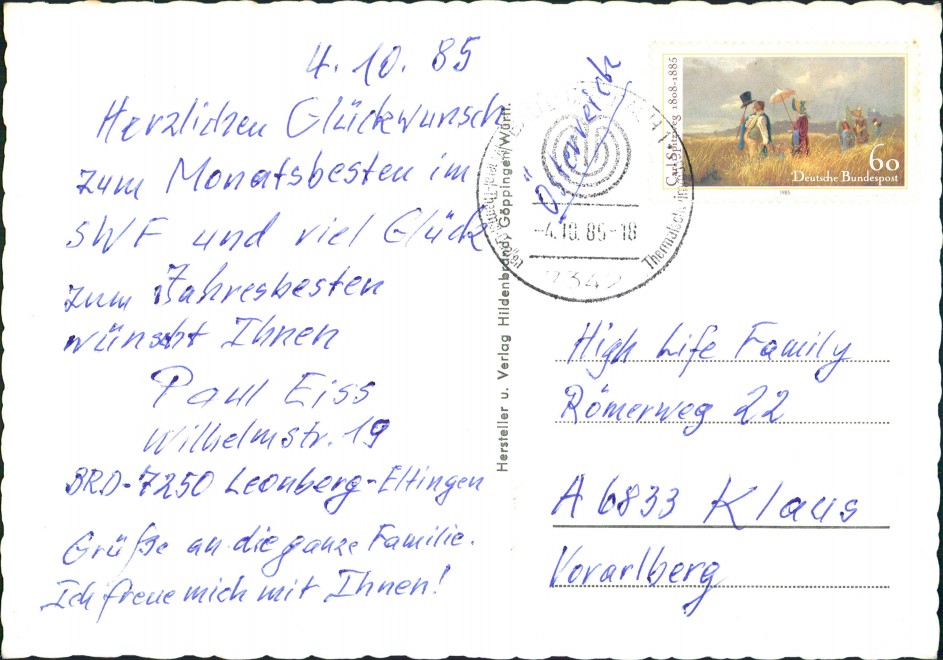 4.10.85
Herzlichen Glückwunsch
zum Monatsbesten im
SWF und viel Glück
zum Jahresbesten
wünscht Ihnen
Paul Eiss
Wilhelmstr. 19
BRD-7250 Leonberg-Eltingen
Grüße an die ganze Familie.
Ich freue mich mit Ihnen!
Hersteller u. Verlag Hildenbrand, Göppingen/Württ.
Österreich
-4.10.85-18
7342
Carl Spitzweg 1808-1885
60
Deutsche Bundespost
1985
High Life Family
Römerweg 22
A 6833 Klaus
Vorarlberg